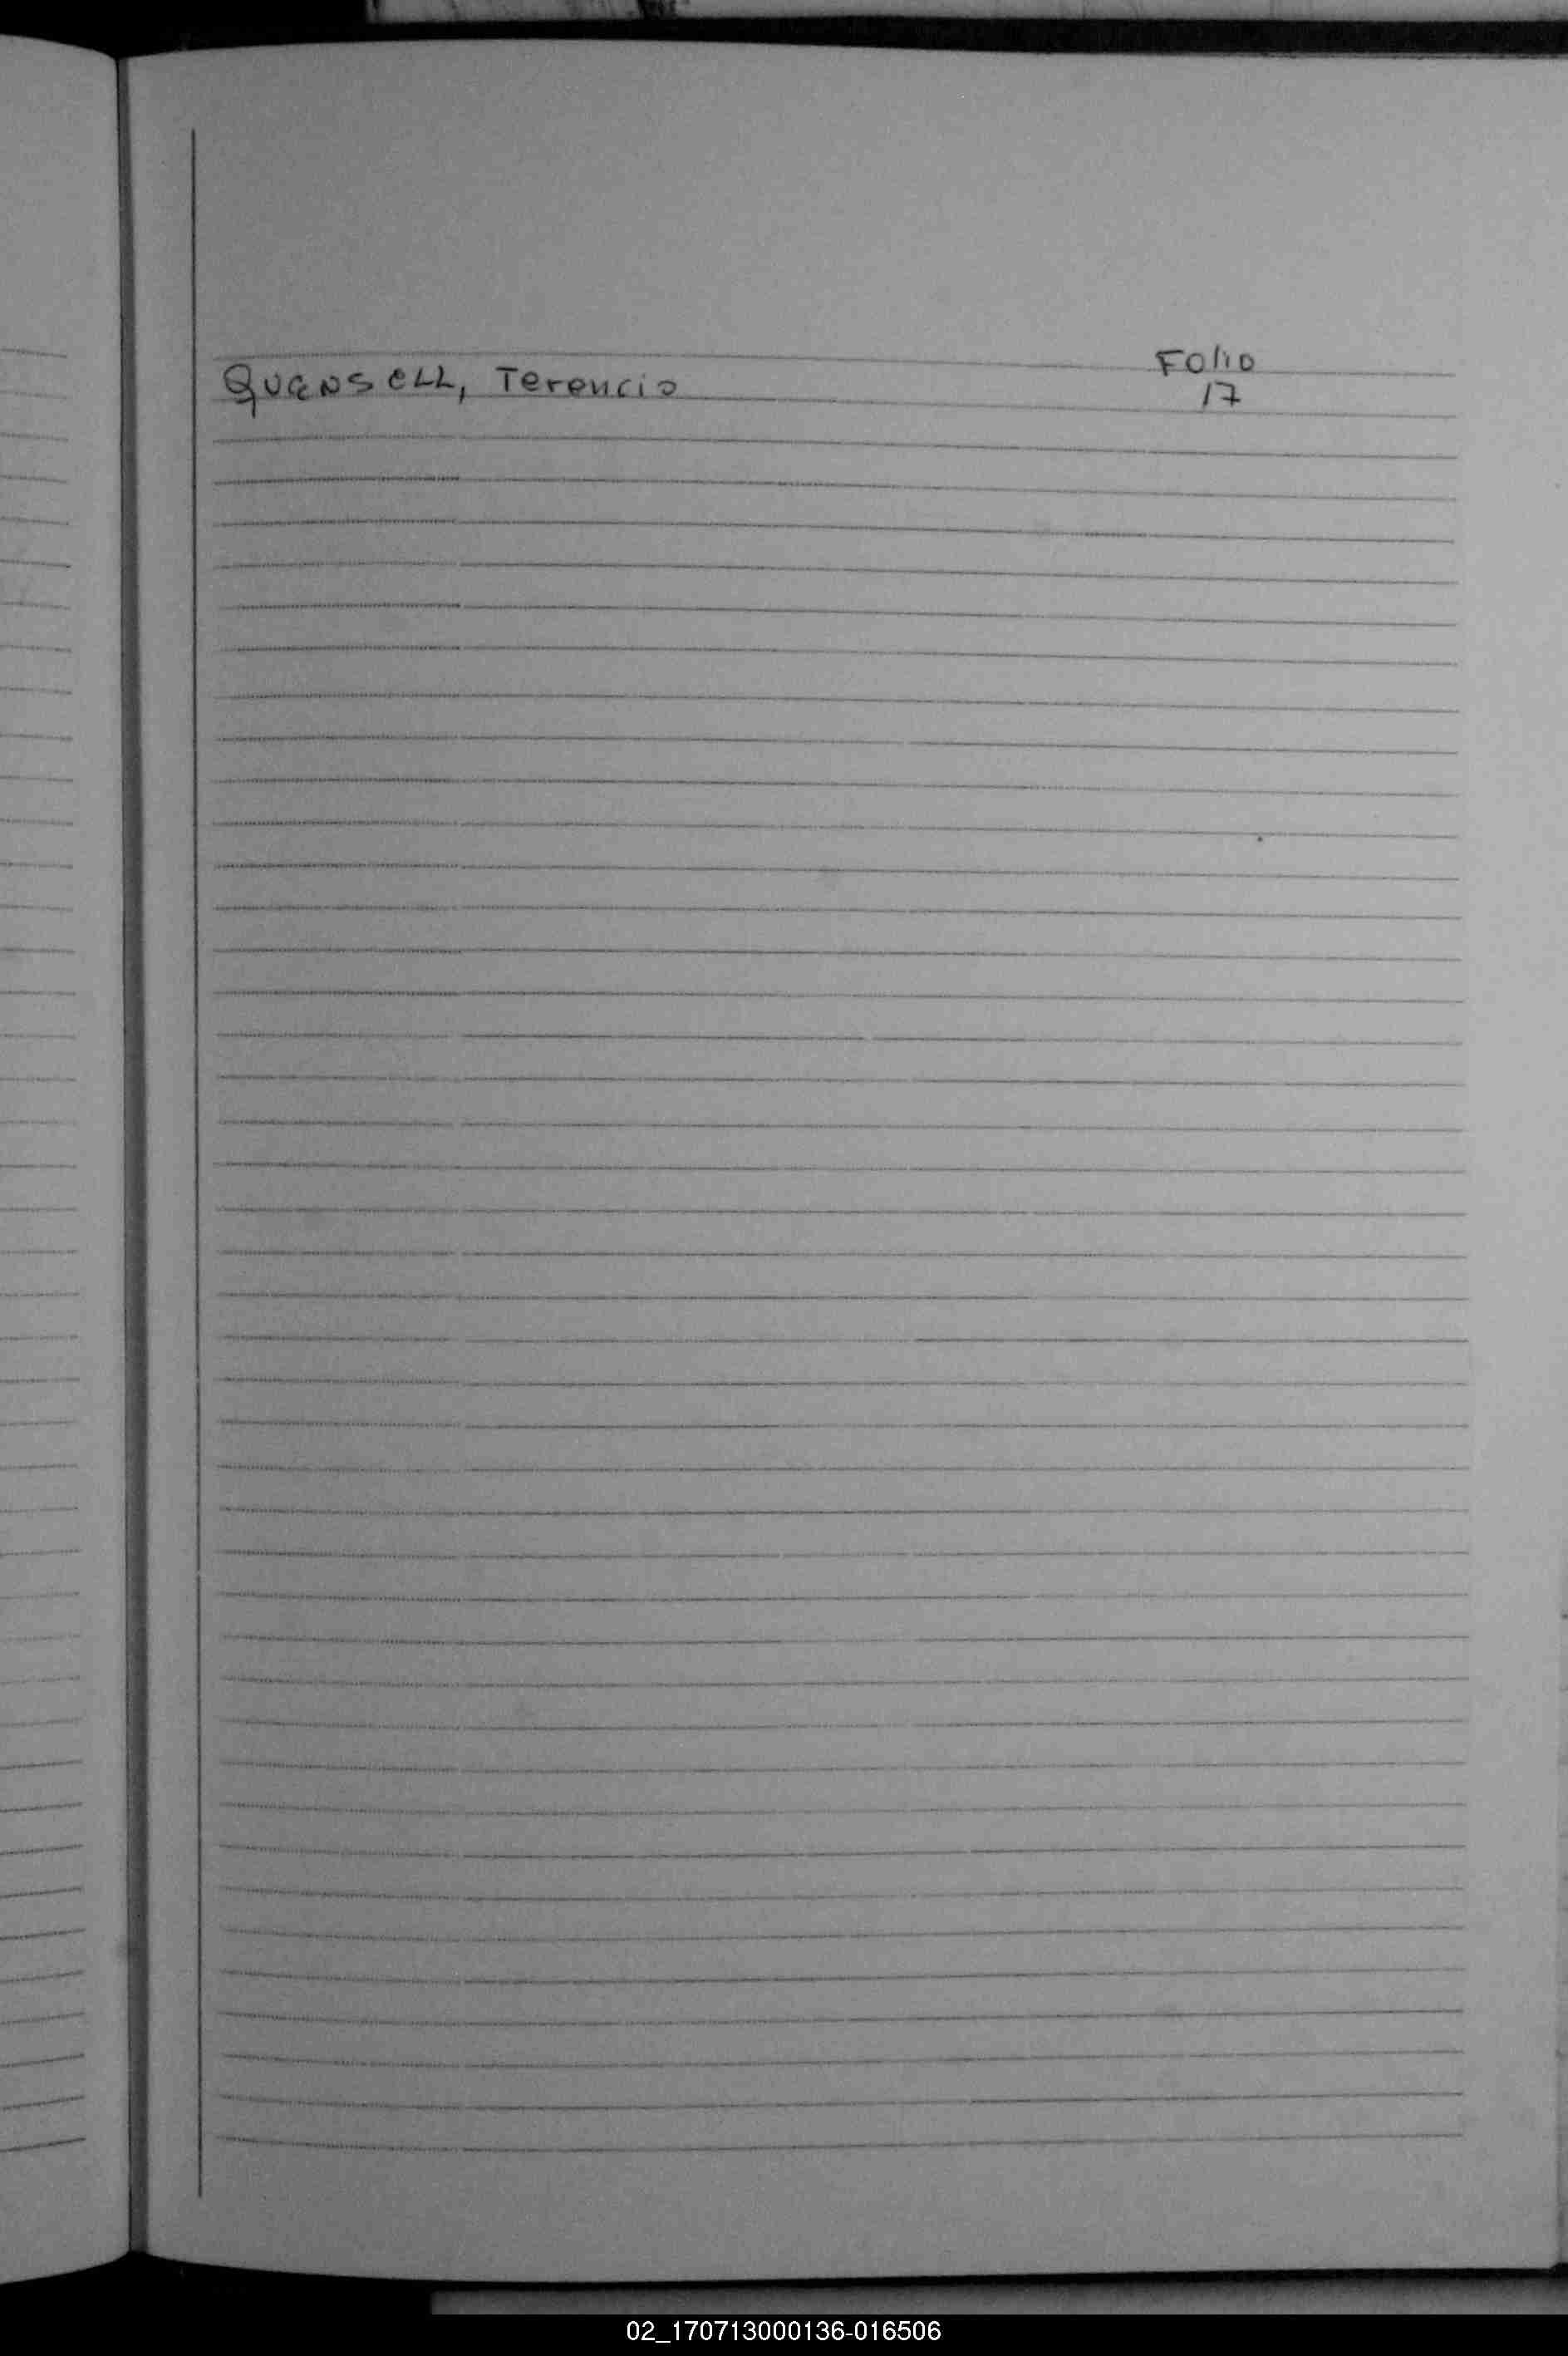 Folio
QUENSELL, Terencio 17
02_170713000136-016506